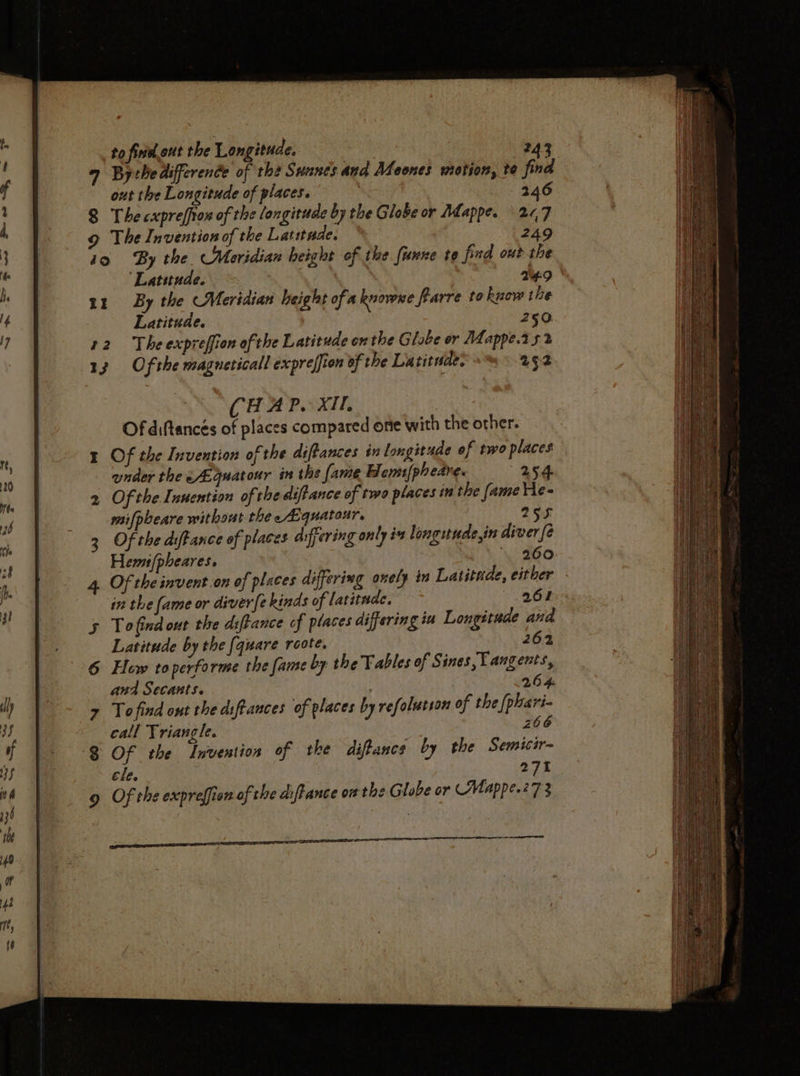 to find out the Longitude. 243
7 By the difference of the Sunnes and Moones motion, to find
out the Longitude of places. 246
8 The expreſſion of the longitude by the Globe or Mappe. 247
9 The Invention of the Latitude. 249
10 By the Meridian height of the ſunne to find out the
Latitude. 249
11 By the Meridian height of a knowne ſtarre to know the
Latitude. 250
12 The expreſſion of the Latitude on the Globe or Mappe. 252
13 Of the magneticall expreſſion of the Latitude. 252
CHAP. XII.
Of diſtances of places compared one with the other.
1 Of the Invention of the diſtances in longitude of two places
vnder the Æquatour in the ſame Hemiſpheare. 254
2 Of the Inuention of the diſtance of two places in the ſame He-
miſpheare without the Æquatour. 255
3 Of the diſtance of places differing only in longitude, in diverſe
Hemiſpheares. 260
4 Of the invention of places differing onely in Latitude, either
in the ſame or diverſe kinds of latitude. 261
5 To find out the diſtance of places differing in Longitude and
Latitude by the ſquare roote. 262
6 How to performe the ſame by the Tables of Sines, Tangents,
and Secants. 264
7 To find out the diſtances of places by reſolution of the ſphari-
call Triangle. 266
8 Of the Invention of the diſtance by the Semicir-
cle. 271
9 Of the expreſſion of the diſtance on the Globe or Mappe. 273